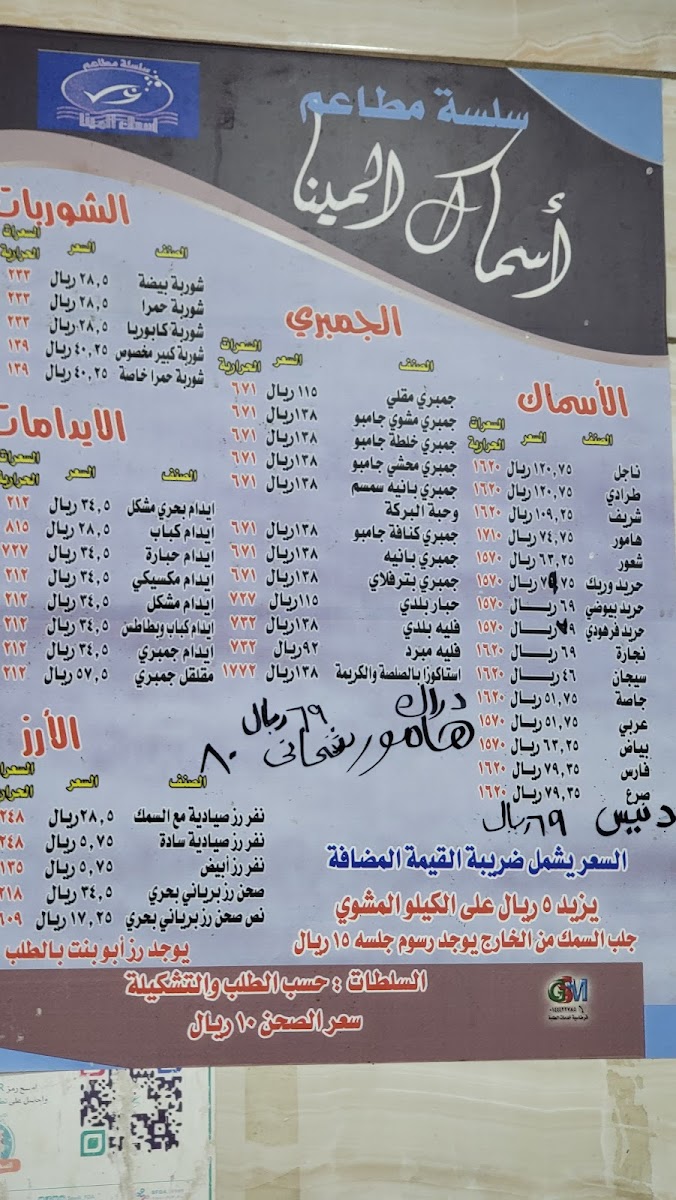 سلسلة مطاعم
أسماك المينا
سلسة مطاعم
أسماك المينا
الشوربات
الصنف السعر السعرات الحرارية
شوربة بيضة ٢٨,٥ ريال ٢٣٣
شوربة حمرا ٢٨,٥ ريال ٢٣٣
شوربة كابوريا ٢٨,٥ ريال ٢٣٣
شوربة كبير مخصوص ٤٠,٢٥ ريال ١٣٩
شوربة حمرا خاصة ٤٠,٢٥ ريال ١٣٩
الجمبري
الصنف السعر السعرات الحرارية
جمبري مقلي ١١٥ ريال ٦٧١
جمبري مشوي جامبو ١٣٨ ريال ٦٧١
جمبري خلطة جامبو ١٣٨ ريال ٦٧١
جمبري محشي جامبو ١٣٨ ريال ٦٧١
جمبري بانيه سمسم ١٣٨ ريال ٦٧١
وحبة البركة
جمبري كنافة جامبو ١٣٨ ريال ٦٧١
جمبري بانيه ١٣٨ ريال ٦٧١
جمبري بترفلاي ١٣٨ ريال ٦٧١
حبار بلدي ١١٥ ريال ٧٢٧
فليه بلدي ١٣٨ ريال ٧٣٢
فليه مبرد ٩٢ ريال ٧٣٢
استاكوزا بالصلصة والكريمة ١٣٨ ريال ١٧٧٢
الأسماك
الصنف السعر السعرات الحرارية
ناجل ١٢٠,٧٥ ريال ١٦٢٠
طرادي ١٢٠,٧٥ ريال ١٦٢٠
شريف ١٠٩,٢٥ ريال ١٦٢٠
هامور ٧٤,٧٥ ريال ١٧١٠
شعور ٦٣,٢٥ ريال ١٥٧٠
حريد وريك ريال ١٥٧٠
حريد بيوضي ٦٩ ريال ١٥٧٠
حريد قرهودي ريال ١٥٧٠
نجارة ٦٩ ريال ١٦٢٠
سيجان ٤٦ ريال ١٦٢٠
جاصة ٥١,٧٥ ريال ١٦٢٠
عربي ٥١,٧٥ ريال ١٥٧٠
بياض ٦٣,٢٥ ريال ١٥٧٠
فارس ٧٩,٣٥ ريال ١٦٢٠
صرع ٧٩,٣٥ ريال ١٦٢٠
دنيس ٦٩ ريال
الايدامات
الصنف السعر السعرات الحرارية
ايدام بحري مشكل ٣٤,٥ ريال ٢١٢
ايدام كباب ٢٨,٥ ريال ٨١٥
ايدام حبارة ٣٤,٥ ريال ٧٢٧
ايدام مكسيكي ٣٤,٥ ريال ٢١٢
ايدام مشكل ٣٤,٥ ريال ٢١٢
ايدام كباب وبطاطس ٣٤,٥ ريال ٢١٢
ايدام جمبري ٣٤,٥ ريال ٢١٢
مقلقل جمبري ٥٧,٥ ريال ٢١٢
دراك ٦٩ ريال
هامور ٨٠
الأرز
الصنف السعر
نفر رز صيادية مع السمك ٢٨,٥ ريال ٢٤٨
نفر رز صيادية سادة ٥,٧٥ ريال ٢٤٨
نفر رز أبيض ٥,٧٥ ريال ١٣٥
صحن رز برياني بحري ٣٤,٥ ريال ٢١٨
نص صحن رز برياني بحري ١٧,٢٥ ريال ٦٠٩
يوجد رز أبو بنت بالطلب
السعر يشمل ضريبة القيمة المضافة
يزيد ٥ ريال على الكيلو المشوي
جلب السمك من الخارج يوجد رسوم جلسه ١٥ ريال
السلطات : حسب الطلب والتشكيلة
سعر الصحن ١٠ ريال
GSM